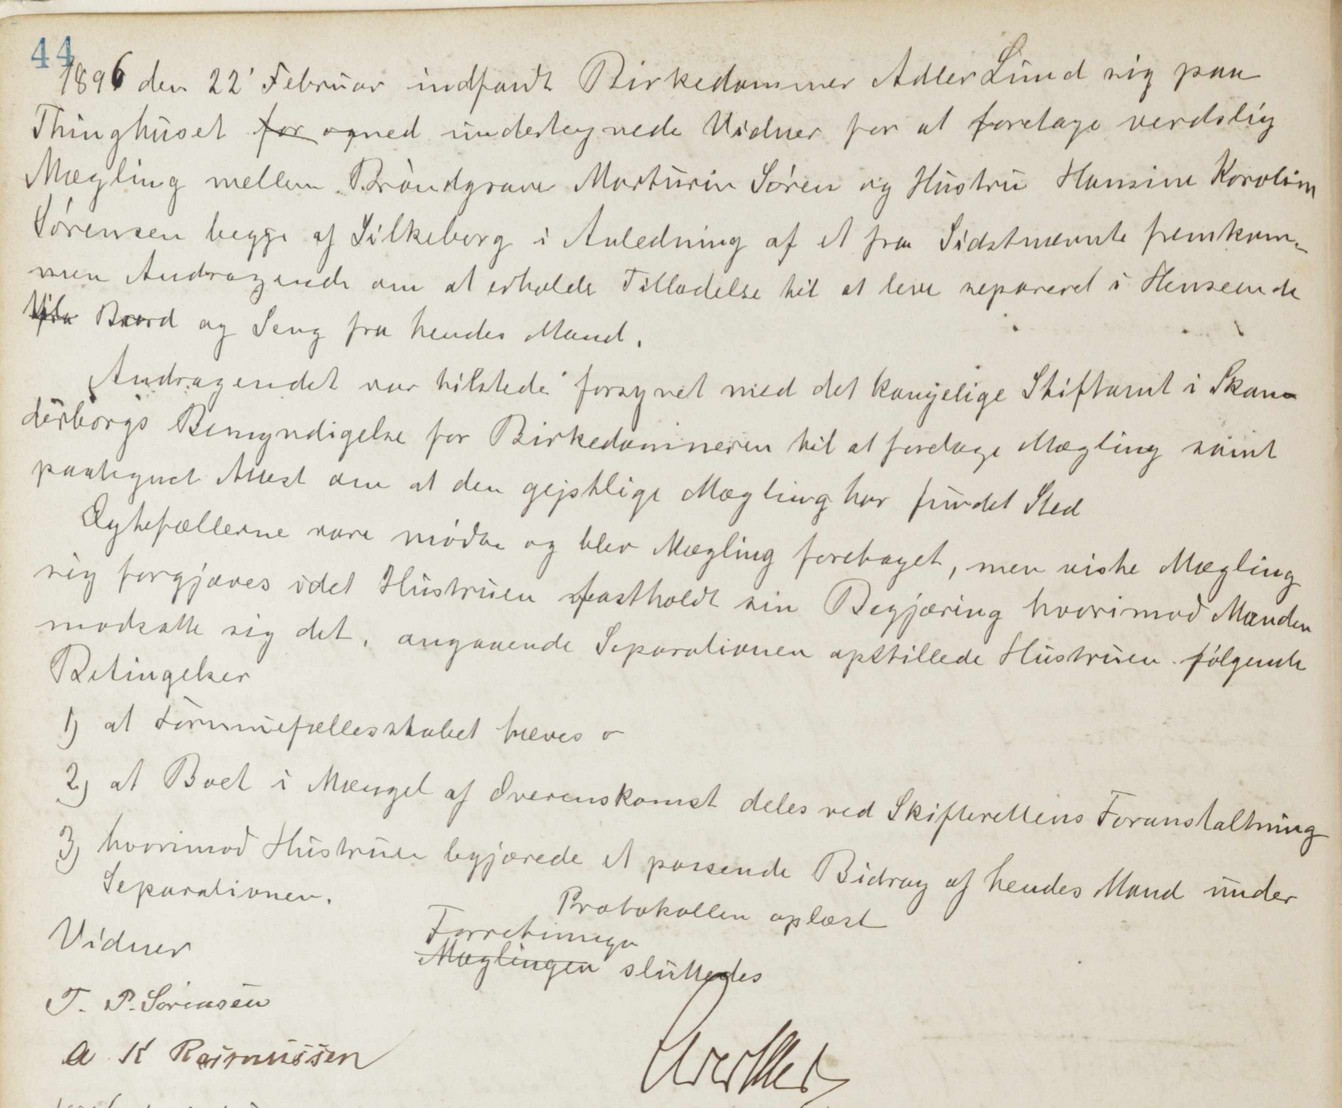 44
1896 den 22' Februar indfandt Birkedommer Adler Lund sig paa
Thinghuset for og med undertegnede Vidner for at foretage verdslig
Mægling mellem Brøndgraver Marturin Søren og Hustru Hansine Karoline
Sørensen begge af Silkeborg i Anledning af et fra Sidstnævnte fremkom-
men Andragende om at erholde Tilladelse til at leve separeret i Henseende
til Bord og Seng fra hendes Mand.
Andragendet var tilstede forsynet med det kongelige Stiftamt i Skan-
derborgs Bemyndigelse for Birkedommeren til at foretage Mægling samt
paategnet Attest om at den gejstlige Mægling har fundet Sted
Ægtefællerne vare mødte og blev Mægling foretaget, men viste Mægling
sig forgjæves idet Hustruen fastholdt sin Begjæring hvorimod Manden
modsatte sig det. angaaende Separationen opstillede Hustruen følgende
Betingelser
1) at Formuefællesskabet hæves o
2) at Boet i Mangel af Overenskomst deles ved Skifterettens Foranstaltning
3) hvorimod Hustruen begjærede et passende Bidrag af hendes Mand under
Separationen.
Protokollen oplæst
Forretningen
Mæglingen sluttedes
Vidner
T. P. Sørensen
A K Rasmussen